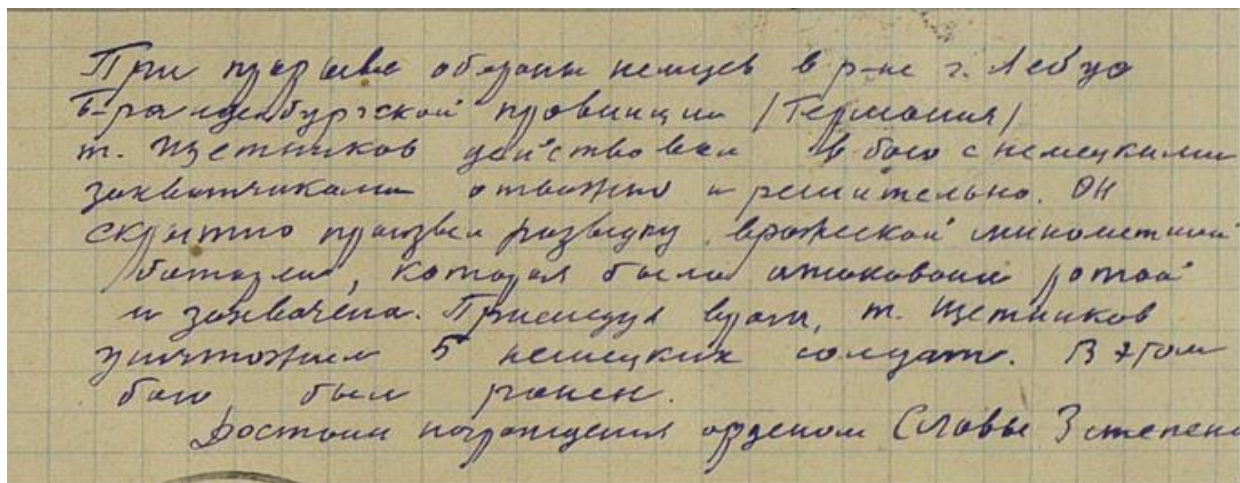 При прорыве обороны немцев в р-не г. Лебус
Бранденбургской провинции /Германия/
т. Щетников действовал в бою с немецкими
захватчиками отважно и решительно. Он
скрытно произвел разведку вражеской минометной
батареи, которая была атакована ротой
и захвачена. Преследуя врага, т. Щетников
уничтожил 5 немецких солдат. В этом
бою был ранен.
Достоин награждения орденом Славы 3 степени